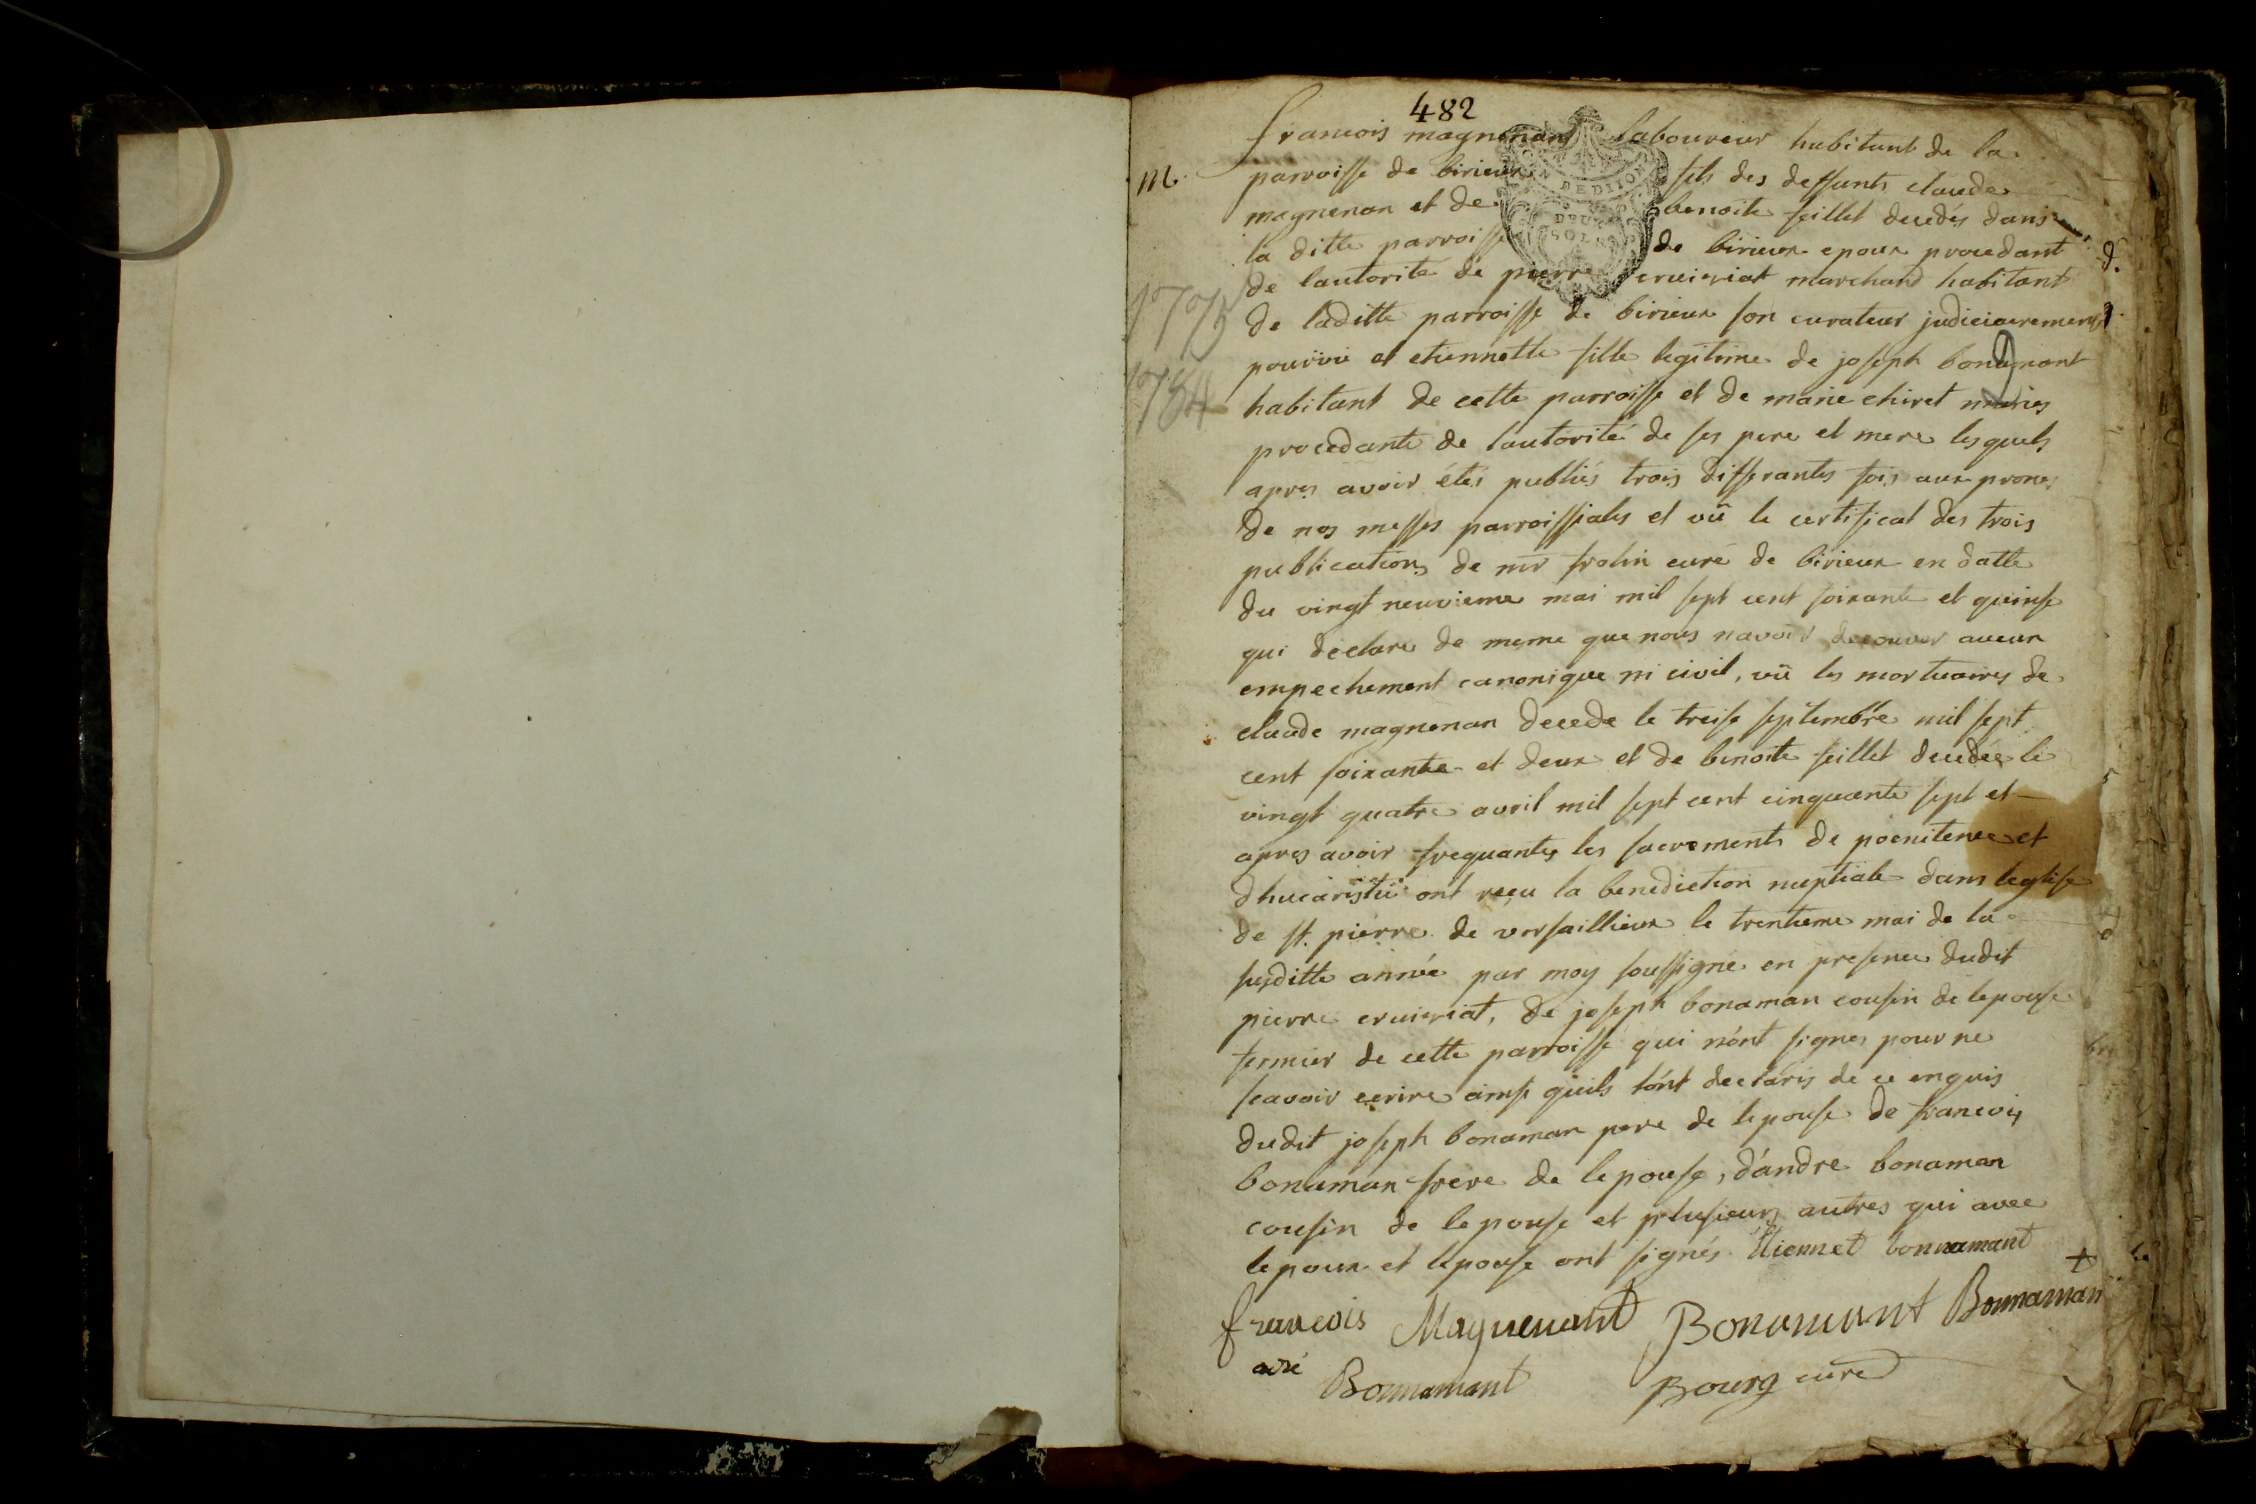 482
francois magnenan laboureur habitant de la
m. parroisse de birieux fils des deffunts claude
magnenan et de benoite feillet decedés dans
la ditte parroisse de birieux epoux procedant
de lautorite de pierre cruieriat marchand habitant
1775
de laditte parroisse de birieux son curateur judiciairement
pourvu et etiennette fille legitime de joseph bonamant
1784
habitant de cette parroisse et de marie chiret mariés
procedante de lautorité de ses pere et mere lesquels
apres avoir étés publiés trois differantes fois aux prones
de nos messes parroissiales et vû le certificat des trois
publications de mr frolin curé de birieux en datte
du vingt neuvieme mai mil sept cent soixante et quinse
qui declare de meme que nous navoir decouver aucun
empechement canonique ni civil, vû les mortuaires de
claude magnenan decede le treise septembre mil sept
cent soixante et deux et de benoite feillet decedée le
vingt quatre avril mil sept cent cinquante sept et
apres avoir frequantes les sacrements de poenitence et
dhucaristie ont reçu la benediction nuptiale dans leglise
de st. pierre de versaillieux le trentieme mai de la
susditte année par moy soussigné en presence dudit
pierre cruieriat, de joseph bonaman cousin de lepouse
fermier de cette parroisse qui n'ont signes pour ne
scavoir ecrire ainsi quils l'ont declaris de ce enquis
dudit joseph bonaman pere de lepouse de francois
bonaman frere de lepouse, d'andre bonaman
cousin de lepouse et plusieurs autres qui avec
lepoux et lepouse ont signés. Etiennet bonnamant
francois Magnenant Bonamant Bonnaman
Bonnamant Bourg curé